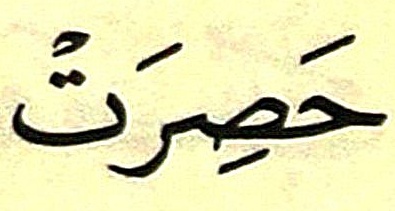 حَصِرَتْ